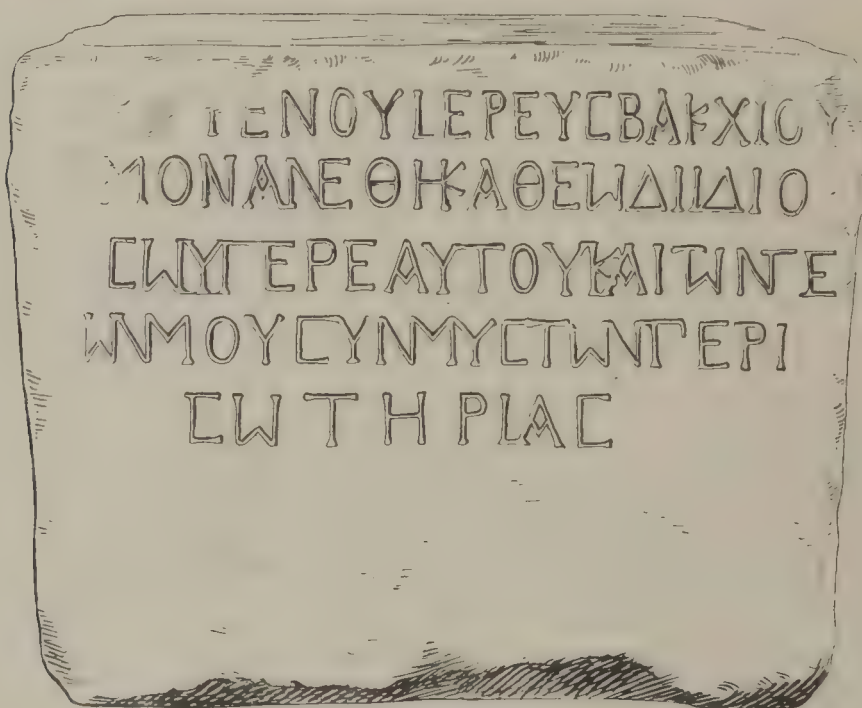 ΓΕΝΟΥΙΕΡΕΥϹΒΑΚΧΙΟΥ
ΜΟΝΑΝΕΘΗΚΑΘΕΩΔΙΙΔΙΟ
ϹΩΥΠΕΡΕΑΥΤΟΥΚΑΙΤΩΝΤΕ
ΩΝΜΟΥϹΥΝΜΥϹΤΩΝΠΕΡΙ
ϹΩΤΗΡΙΑϹ